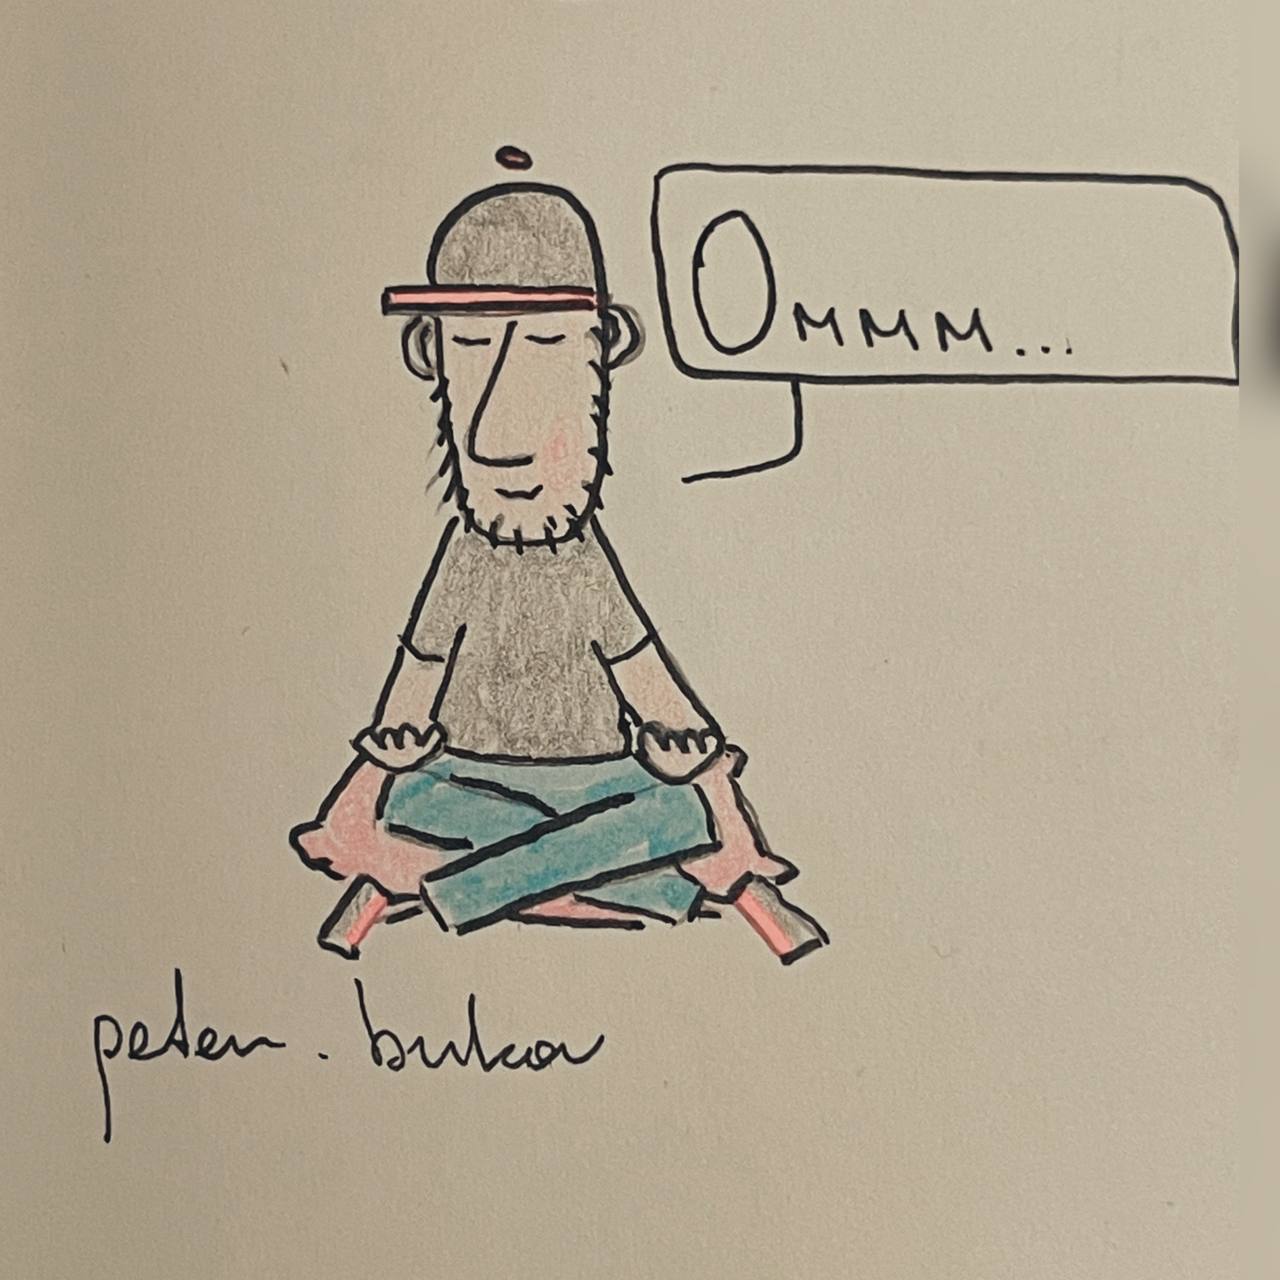 Ommm...
peter.bukov